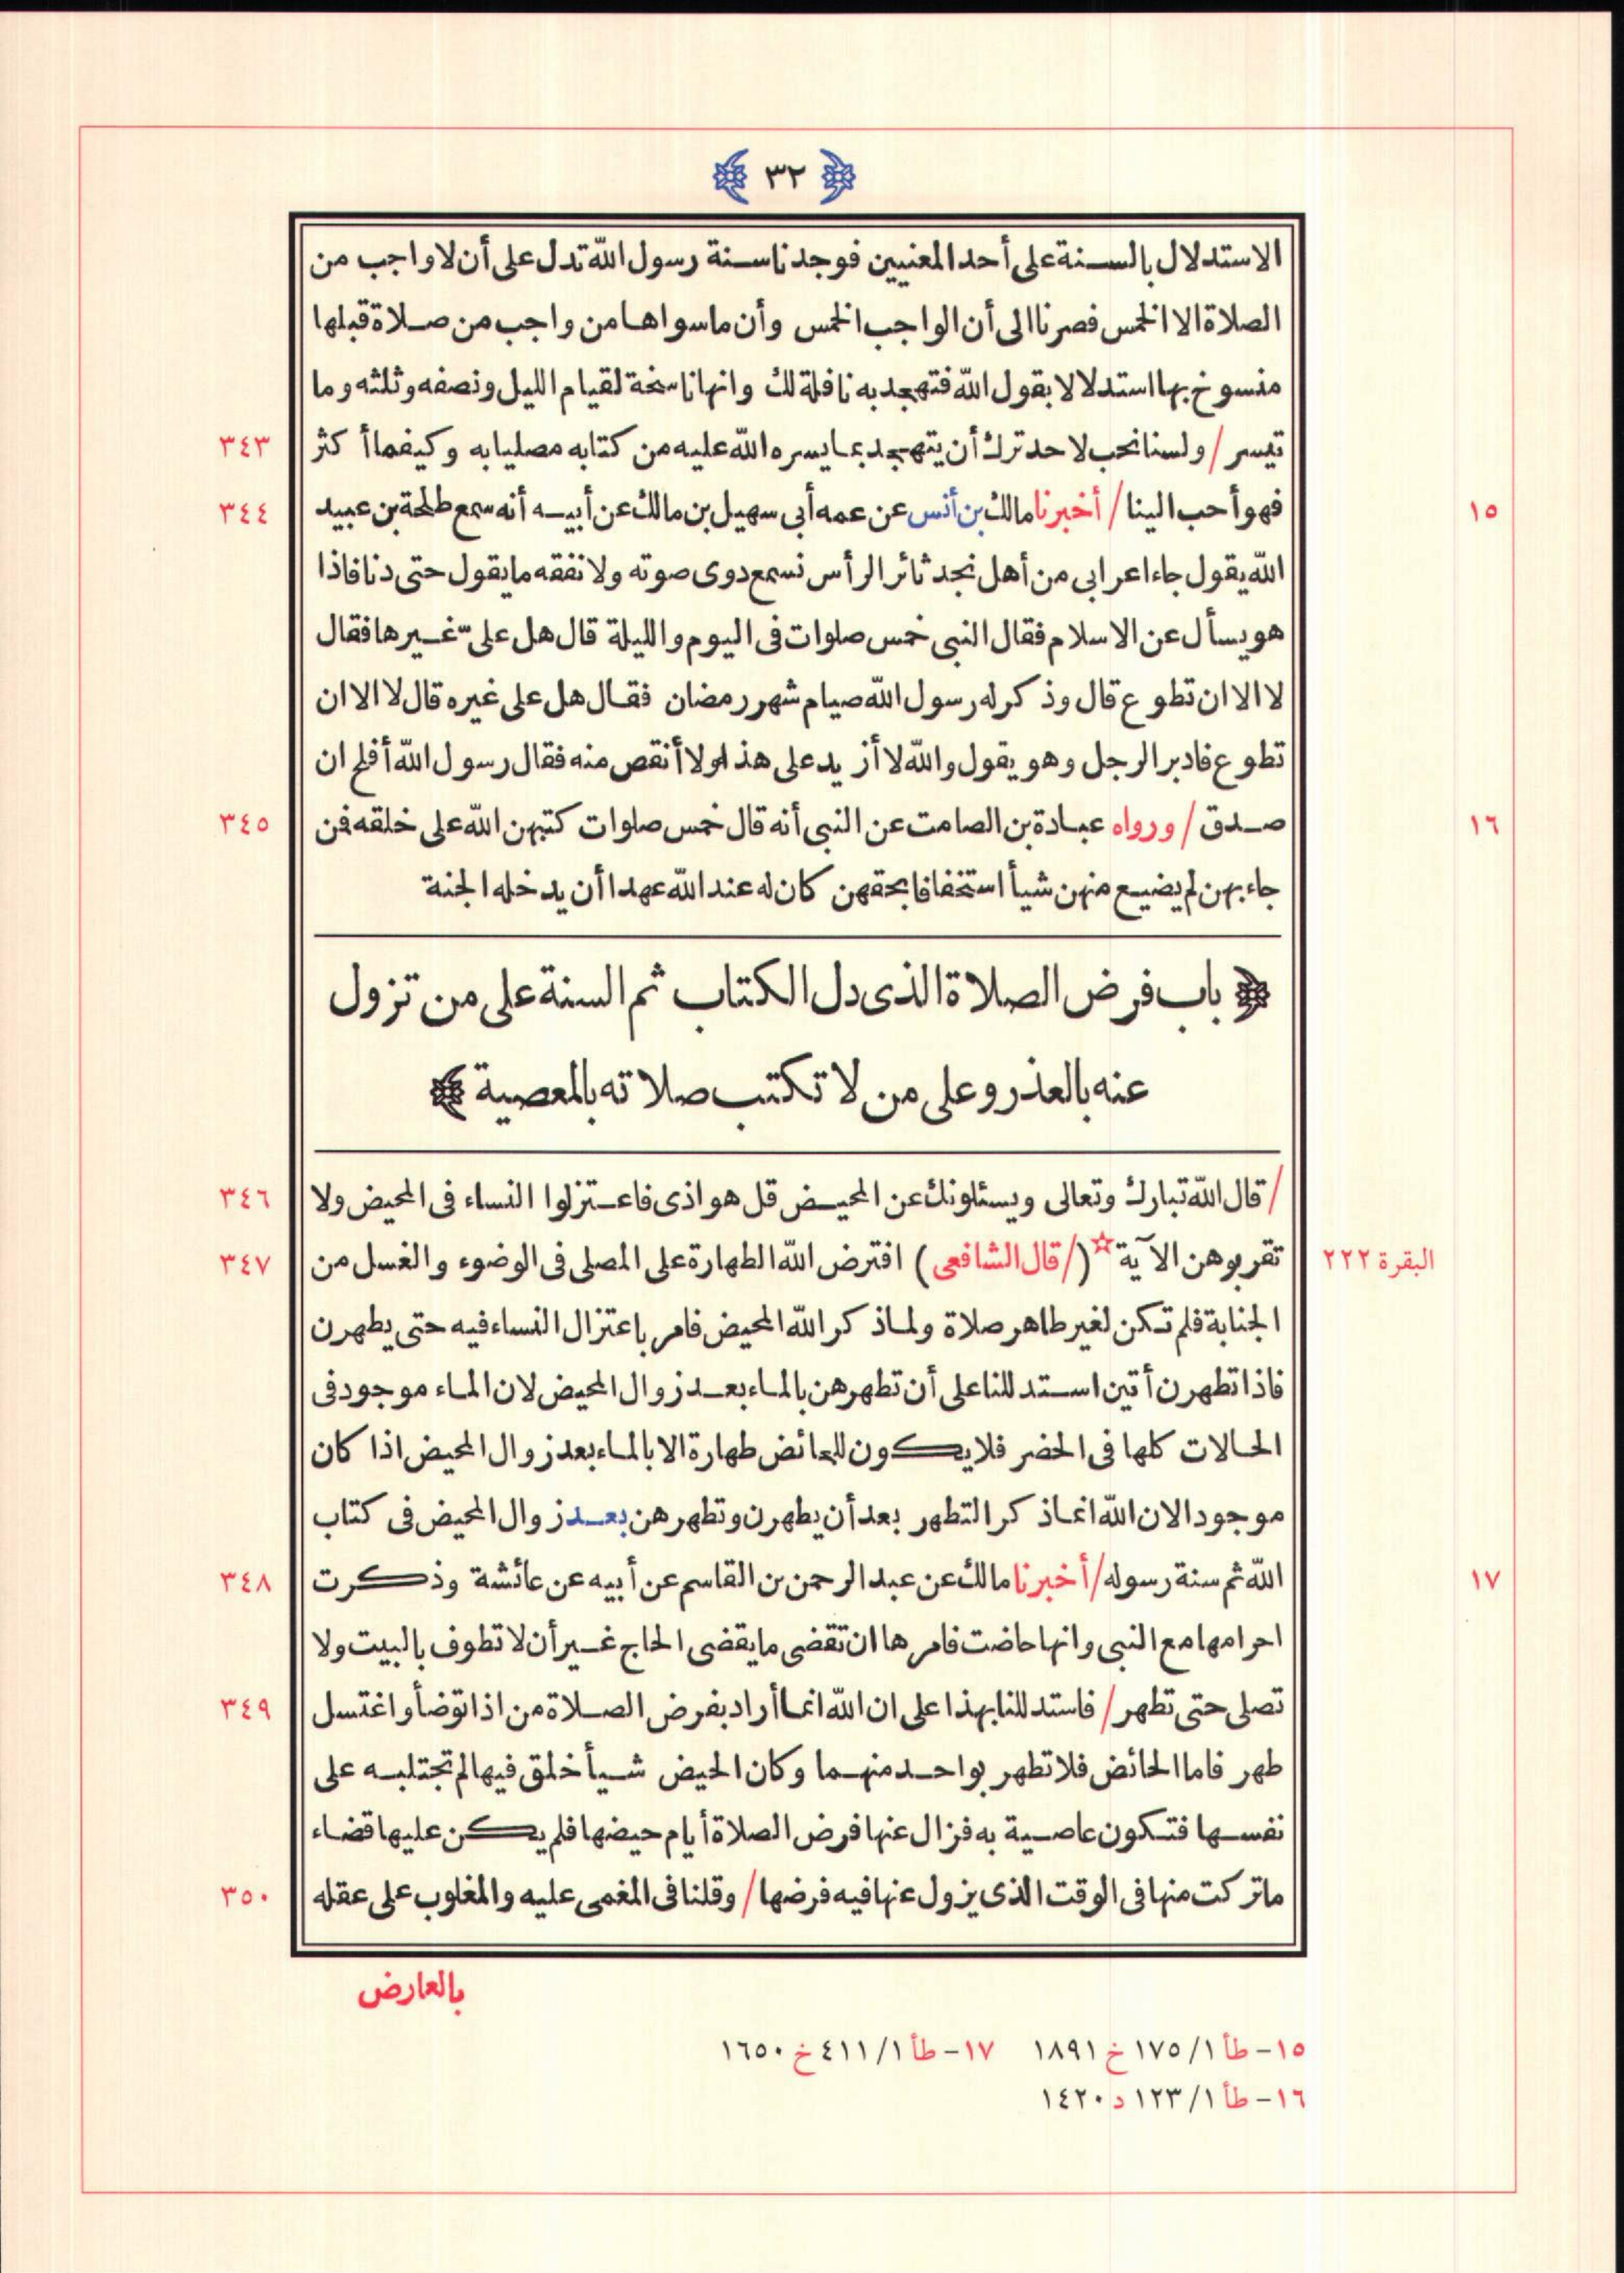 ٣٢
الاستدلال بالسنة على أحد المعنيين فوجدنا سنة رسول الله تدل على أن لا واجب من
الصلاة الا الخمس فصرنا الى أن الواجب الخمس وأن ما سواها من واجب من صلاة قبلها
منسوخ بها استدلالا بقول الله فتهجد به نافلة لك وانها ناسخة لقيام الليل ونصفه وثلثه وما
تيسر / ولسنا نحب لاحد ترك أن يتهجد بما يسره الله عليه من كتابه مصليا به وكيفما أكثر ٣٤٣
١٥ فهو أحب الينا / أخبرنا مالك بن أنس عن عمه أبى سهيل بن مالك عن أبيه أنه سمع طلحة بن عبيد ٣٤٤
الله يقول جاء اعرابى من أهل نجد ثائر الرأس نسمع دوى صوته ولا نفقه ما يقول حتى دنا فاذا
هو يسأل عن الاسلام فقال النبى خمس صلوات فى اليوم والليلة قال هل علىّ غيرها فقال
لا الا ان تطوع قال وذكر له رسول الله صيام شهر رمضان فقال هل على غيره قال لا الا ان
تطوع فادبر الرجل وهو يقول والله لا أزيد على هذا ولا أنقص منه فقال رسول الله أفلح ان
١٦ صدق / ورواه عبادة بن الصامت عن النبى أنه قال خمس صلوات كتبهن الله على خلقه فمن ٣٤٥
جاء بهن لم يضيع منهن شيأ استخفافا بحقهن كان له عند الله عهدا أن يدخله الجنة
﴿ باب فرض الصلاة الذى دل الكتاب ثم السنة على من تزول
عنه بالعذر وعلى من لا تكتب صلاته بالمعصية ﴾
/ قال الله تبارك وتعالى ويسئلونك عن المحيض قل هو اذى فاعتزلوا النساء فى المحيض ولا ٣٤٦
البقرة ٢٢٢ تقربوهن الآية ☆ (/ قال الشافعى) افترض الله الطهارة على المصلى فى الوضوء والغسل من ٣٤٧
الجنابة فلم تكن لغير طاهر صلاة ولما ذكر الله المحيض فامر باعتزال النساء فيه حتى يطهرن
فاذا تطهرن أتين استدللنا على أن تطهرهن بالماء بعد زوال المحيض لان الماء موجود فى
الحالات كلها فى الحضر فلا يكون للحائض طهارة الا بالماء بعد زوال المحيض اذا كان
موجودا لان الله انما ذكر التطهر بعد أن يطهرن وتطهرهن بعد زوال المحيض فى كتاب
١٧ الله ثم سنة رسوله / أخبرنا مالك عن عبد الرحمن بن القاسم عن أبيه عن عائشة وذكرت ٣٤٨
احرامها مع النبى وانها حاضت فامرها ان تقضى ما يقضى الحاج غير أن لا تطوف بالبيت ولا
تصلى حتى تطهر / فاستدللنا بهذا على ان الله انما أراد بفرض الصلاة من اذا توضأ واغتسل ٣٤٩
طهر فاما الحائض فلا تطهر بواحد منهما وكان الحيض شيأ خلق فيها لم تجتلبه على
نفسها فتكون عاصية به فزال عنها فرض الصلاة أيام حيضها فلم يكن عليها قضاء
ما تركت منها فى الوقت الذى يزول عنها فيه فرضها / وقلنا فى المغمى عليه والمغلوب على عقله ٣٥٠
بالعارض
١٥- طأ ١/ ١٧٥ خ ١٨٩١ ١٧- طأ ١/ ٤١١ خ ١٦٥٠
١٦- طأ ١/ ١٢٣ د ١٤٢٠